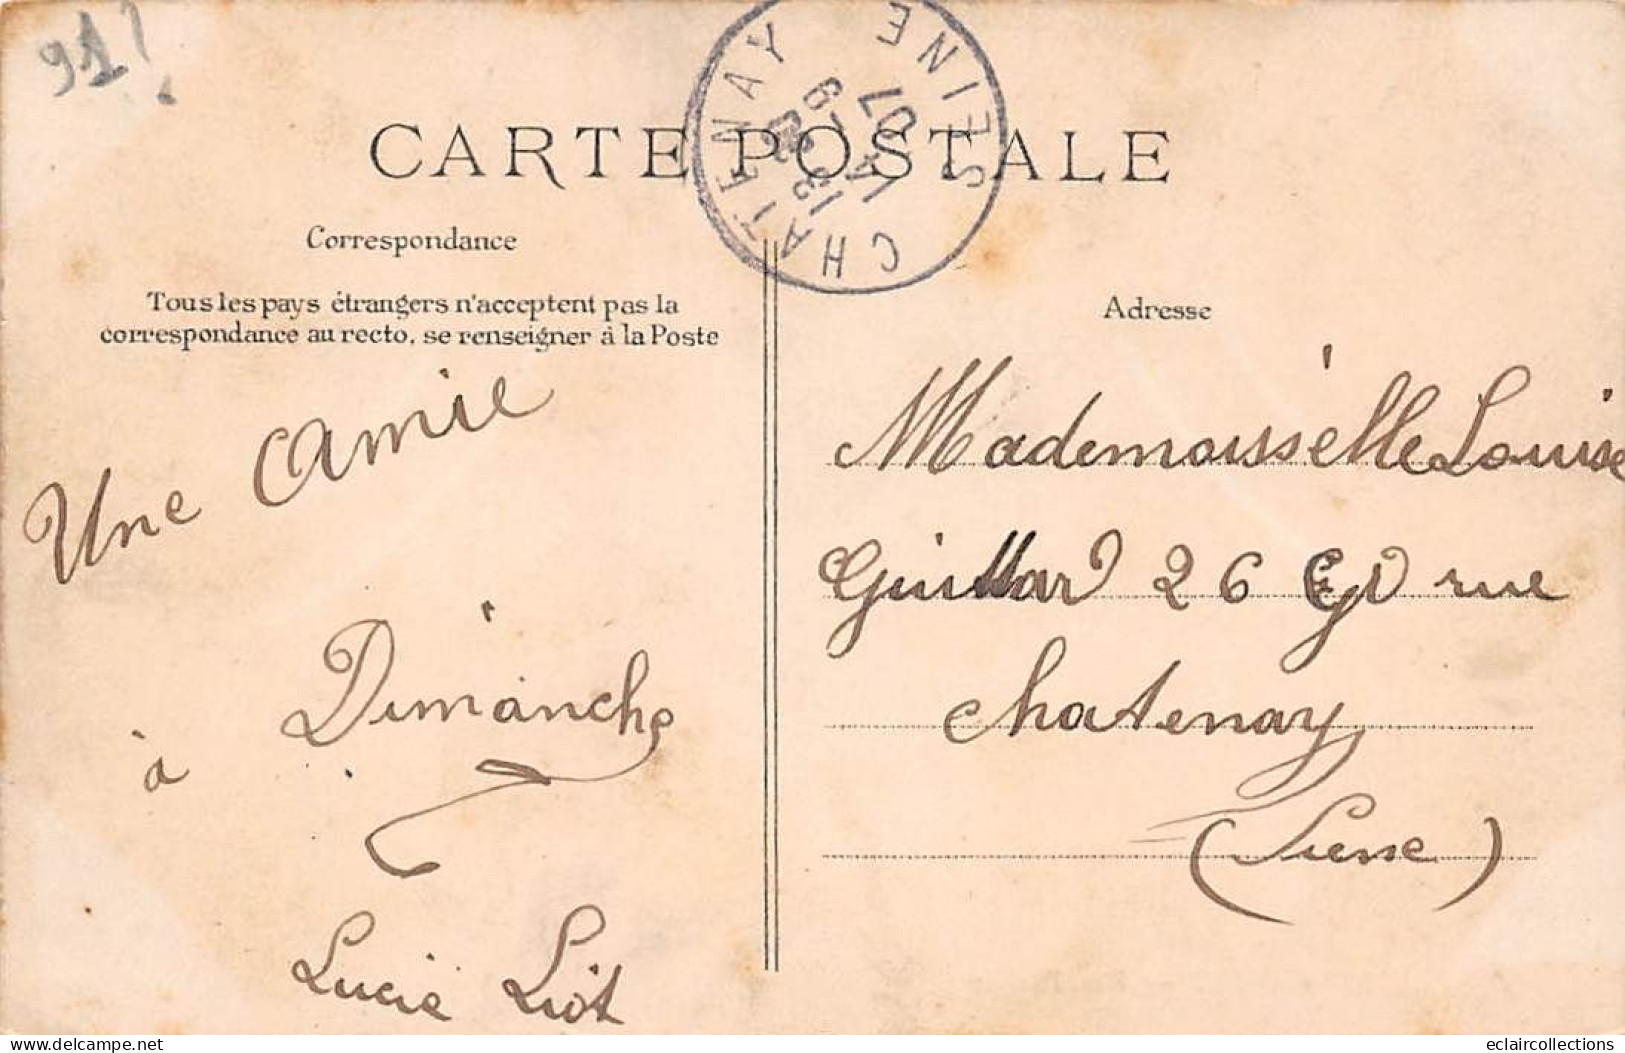 91
CARTE POSTALE
CHATENAY
SEINE
07
Correspondance
Tous les pays étrangers n'acceptent pas la
correspondance au recto, se renseigner à la Poste
Une Amie
à Dimanche
Lucie Liot
Adresse
Mademoisselle Louise
Guillard 26 rue
Chatenay
(Siene)
delcampe.net
eclaircollections